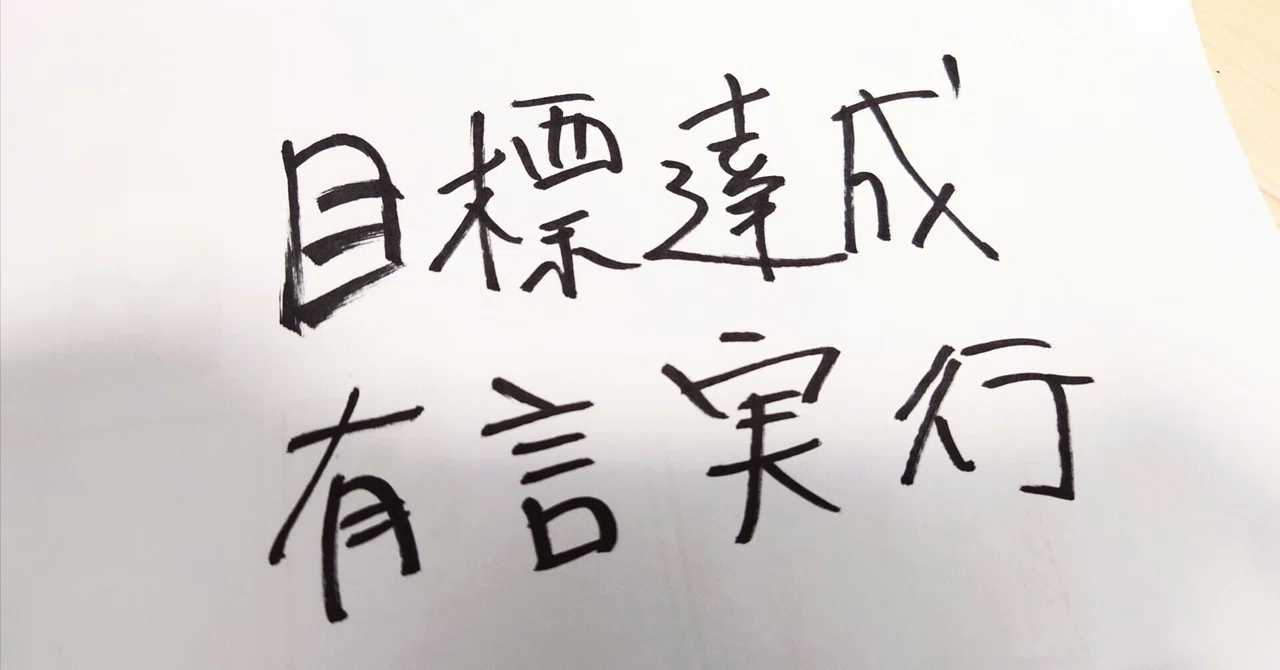 目標達成
有言実行